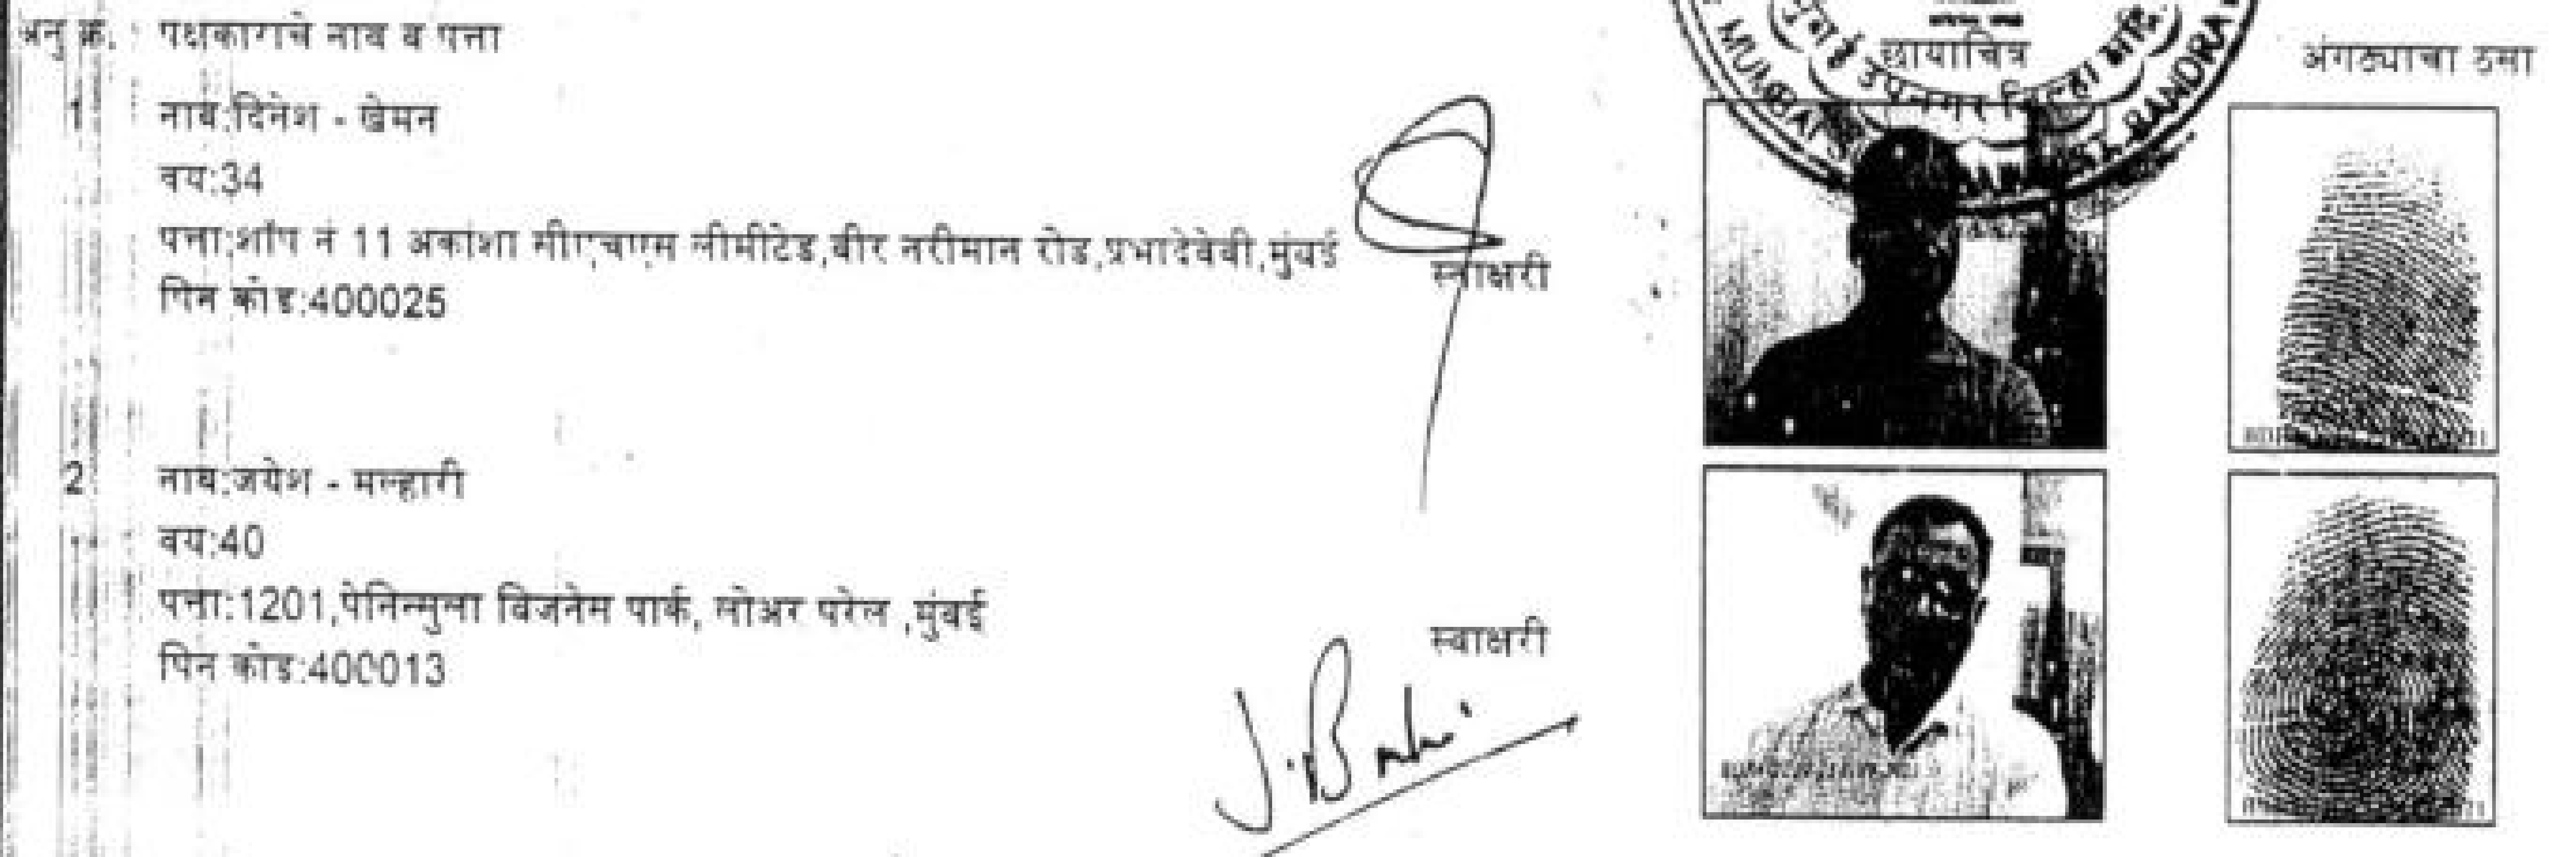 अनु क्र. पक्षकाराचे नाव व पत्ता छायाचित्र अंगठ्याचा ठसा
1 नाव:दिनेश - खेमन
वय:34
पत्ता:शॉप नं 11 अकांशा सीएचएस लीमीटेड,वीर नरीमान रोड,प्रभादेवेवी,मुंबई
पिन कोड:400025
स्वाक्षरी
2 नाव:जयेश - मल्हारी
वय:40
पत्ता:1201,पेनिन्सुला बिजनेस पार्क, लोअर परेल ,मुंबई
पिन कोड:400013
स्वाक्षरी
मुंबई उपनगर जिल्हा
MUMBAI DIST. BANDRA